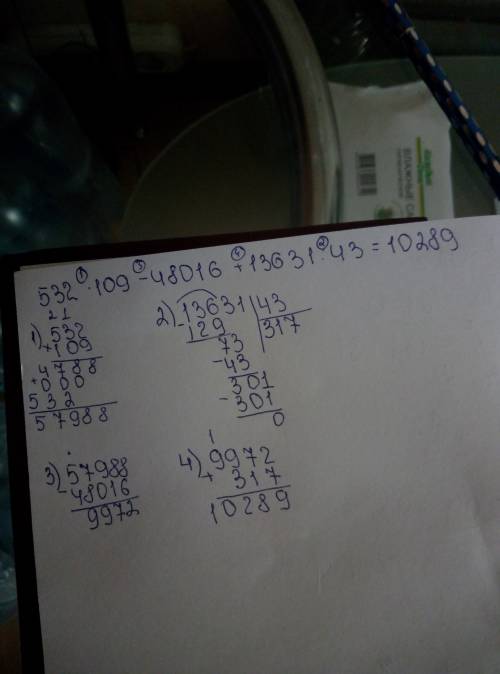 ВЛАЖНЫЕ
① ③ ④ ②
532·109-48016+13631:43=10289
2 1
1) 532
×109
4788
+000
532
57988
2) 13631 | 43
-129 | 317
73
-43
301
-301
0
3) 57988
-48016
9972
1
4) 9972
+ 317
10289